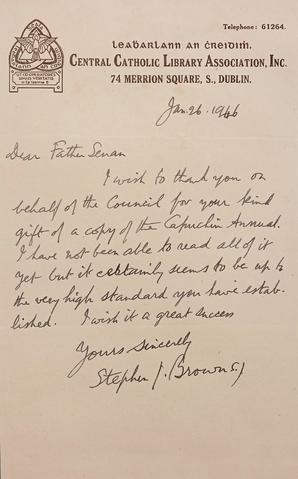 Telephone: 61264.
leabarlann an creidim.
CENTRAL CATHOLIC LIBRARY ASSOCIATION, INC.
74 MERRION SQUARE, S., DUBLIN.
Jan. 26. 1946
Dear Father Senan
I wish to thank you on
behalf of the Council for your kind
gift of a copy of the Capuchin Annual.
I have not been able to read all of it
yet but it certainly seems to be up to
the very high standard you have estab-
lished. I wish it a great success
Yours sincerely
Stephen J. Brown S.J